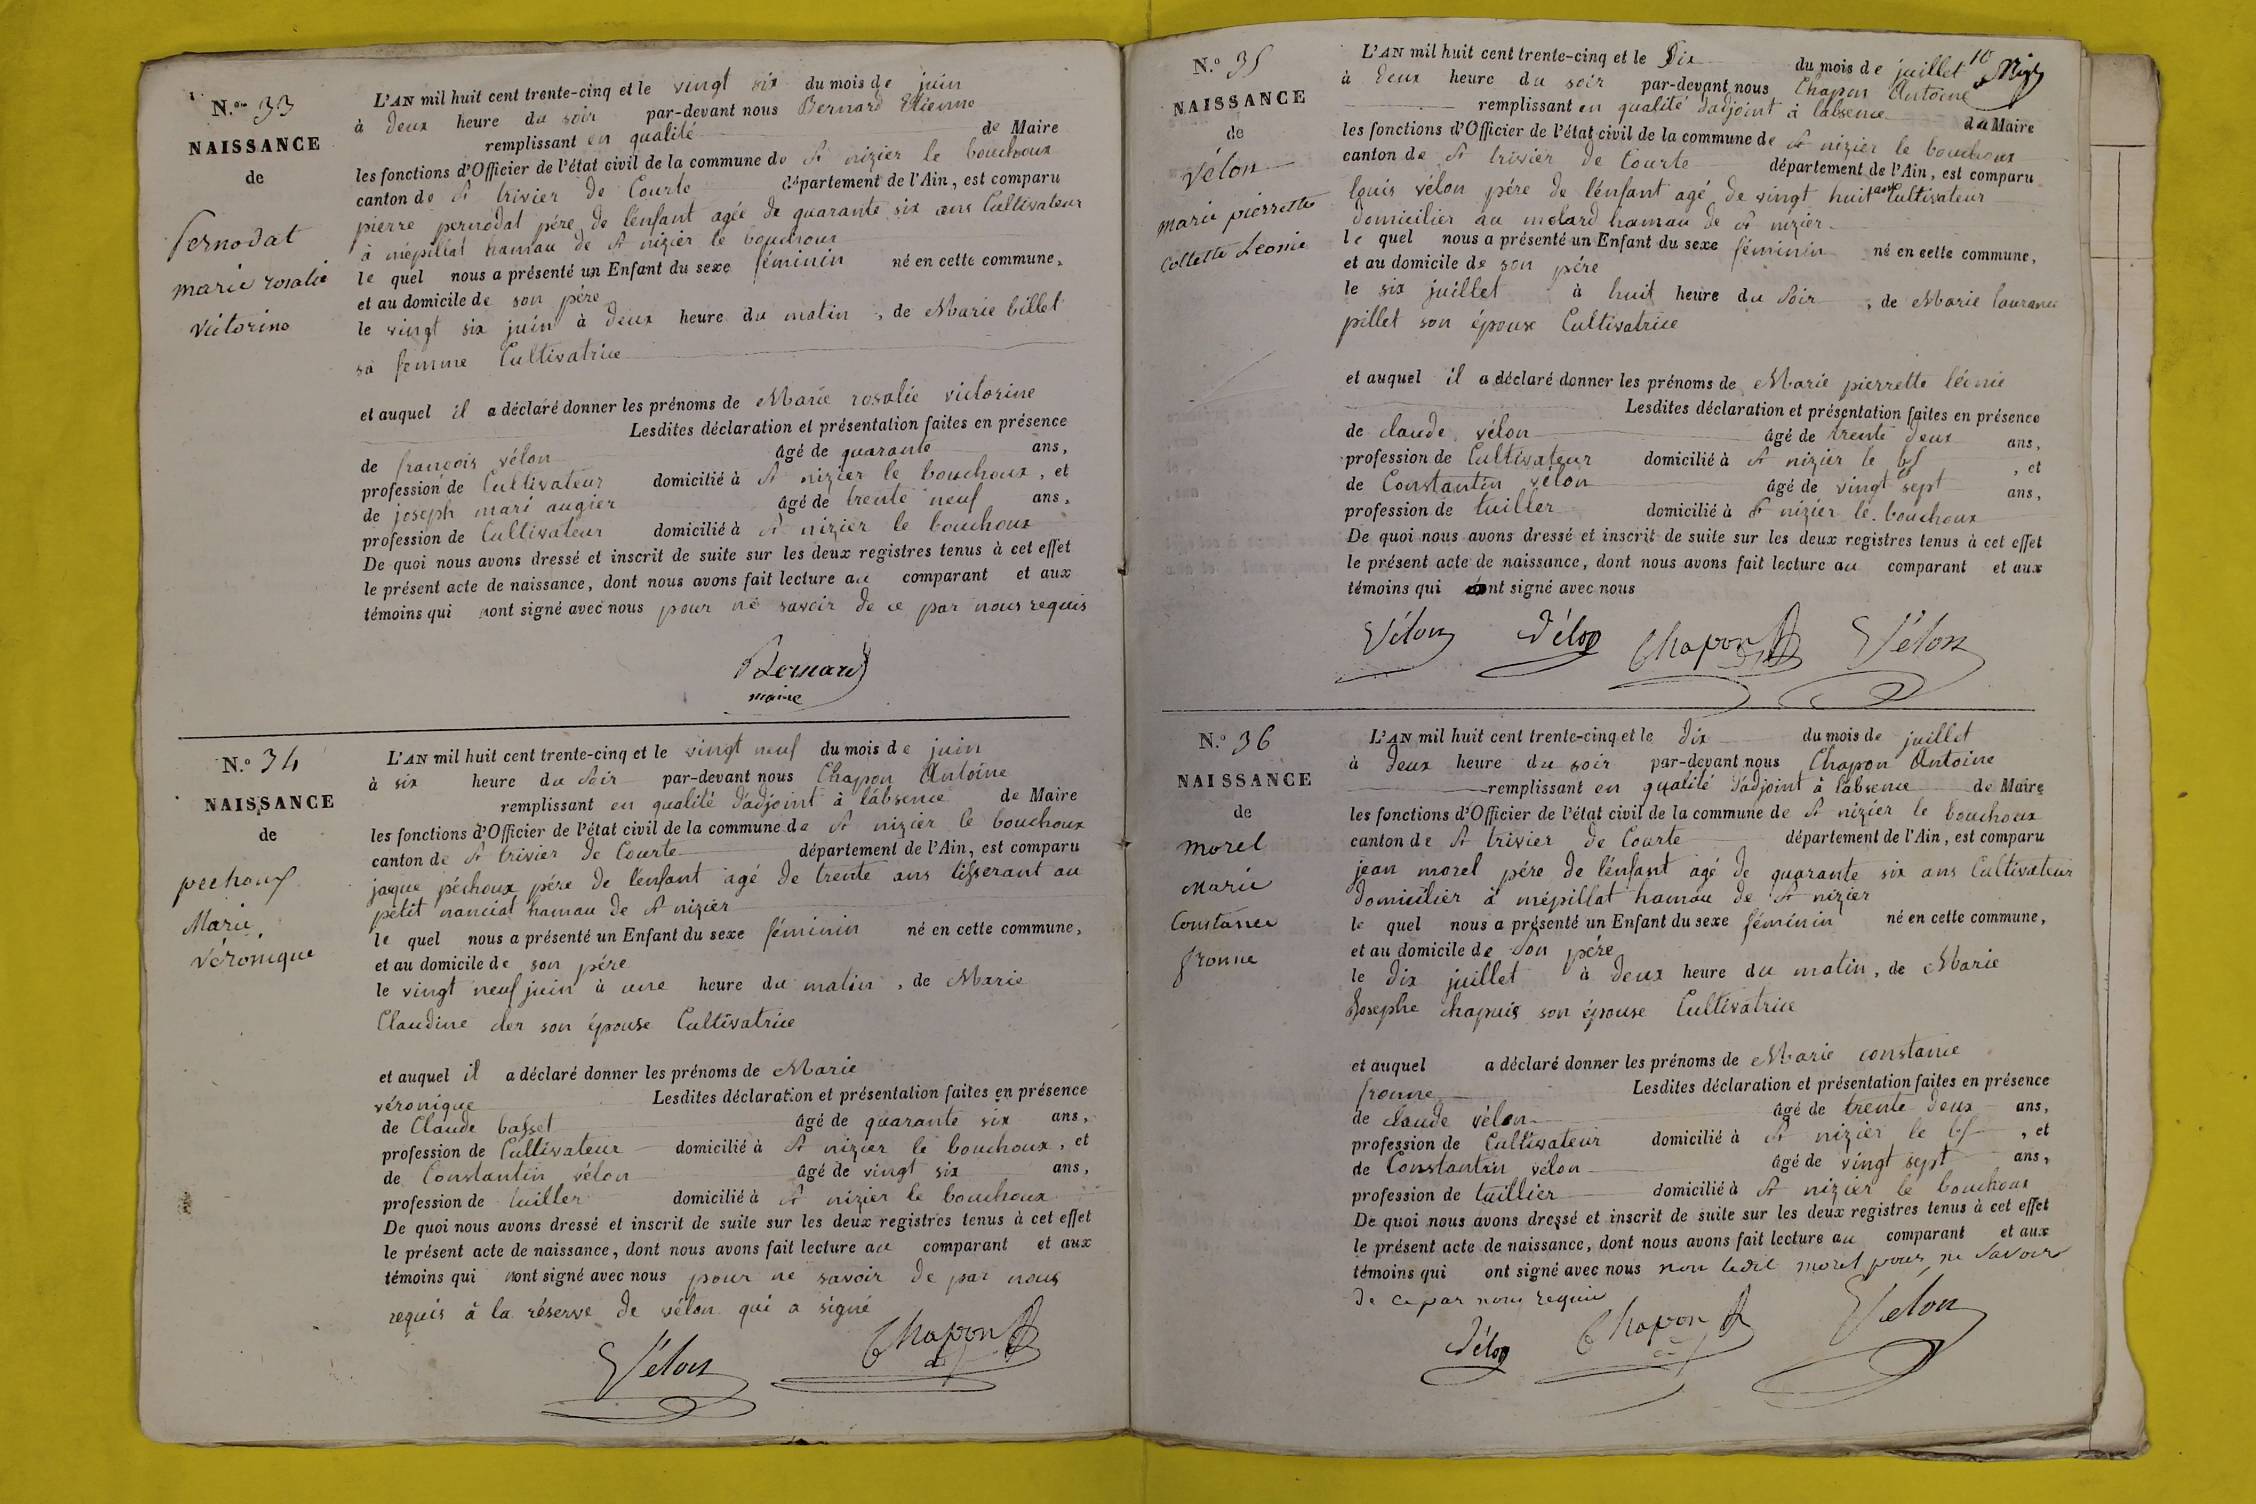 N.o 33
NAISSANCE
de
pernodat
marie rosalie
victorine
L'AN mil huit cent trente-cinq et le vingt six du mois de juin
à deux heure du soir par-devant nous Bernard Etienne
remplissant en qualité de Maire
les fonctions d'Officier de l'état civil de la commune de St nizier le bouchoux
canton de St trivier de Courte département de l'Ain, est comparu
pierre pernodat pére de lénfant agée de quarante six ans Cultivateur
à mépillat hamau de St nizier le bouchoux
le quel nous a présenté un Enfant du sexe féminin né en cette commune,
et au domicile de son pére
le vingt six juin à deux heure du matin, de Marie billet
sa femme Cultivatrice
et auquel il a déclaré donner les prénoms de Marie rosalie victorine
Lesdites déclaration et présentation faites en présence
de françois vélon âgé de quarante ans,
profession de Cultivateur domicilié à St nizier le bouchoux, et
de joseph mari augier âgé de trente neuf ans,
profession de Cultivateur domicilié à St nizier le bouchoux
De quoi nous avons dressé et inscrit de suite sur les deux registres tenus à cet effet
le présent acte de naissance, dont nous avons fait lecture au comparant et aux
témoins qui nont signé avec nous pour ne savoir de ce par nous requis
Bernard
maire
N.o 34
NAISSANCE
de
pechoux
Marie
véronique
L'AN mil huit cent trente-cinq et le vingt neuf du mois de juin
à six heure du soir par-devant nous Chapon Antoine
remplissant en qualité dádjoint à lábsence de Maire
les fonctions d'Officier de l'état civil de la commune de St nizier le bouchoux
canton de St trivier de Courte département de l'Ain, est comparu
jaque péchoux pére de lénfant agé de trente ans tisserant au
petit nanciat hamau de St nizier
le quel nous a présenté un Enfant du sexe féminin né en cette commune,
et au domicile de son pére
le vingt neuf juin à une heure du matin, de Marie
Claudine der son épouse Cultivatrice
et auquel il a déclaré donner les prénoms de Marie
véronique Lesdites déclaration et présentation faites en présence
de Claude basset âgé de quarante six ans,
profession de Cultivateur domicilié à St nizier le bouchoux, et
de Constantin vélon âgé de vingt six ans,
profession de tuiller domicilié à St nizier le bouchoux
De quoi nous avons dressé et inscrit de suite sur les deux registres tenus à cet effet
le présent acte de naissance, dont nous avons fait lecture au comparant et aux
témoins qui nont signé avec nous pour ne savoir de par nous
requis à la réserve de vélon qui a signé
Vélon Chapon
N.o 35
NAISSANCE
de
vélon
marie pierrette
Collette Leonie
L'AN mil huit cent trente-cinq et le Dix du mois de juillet
à deux heure du soir par-devant nous Chapon Antoine
remplissant en qualité dádjoint à lábsence du Maire
les fonctions d'Officier de l'état civil de la commune de St nizier le bouchoux
canton de St trivier de Courte département de l'Ain, est comparu
louis vélon pére de lénfant agé de vingt huit ans Cultivateur
domicilier au molard hamau de St nizier
le quel nous a présenté un Enfant du sexe féminin né en cette commune,
et au domicile de son pére
le six juillet à huit heure du soir, de Marie laurance
pillet son épouse Cultivatrice
et auquel il a déclaré donner les prénoms de Marie pierrette léonie
Lesdites déclaration et présentation faites en présence
de claude vélon âgé de trente deux ans,
profession de Cultivateur domicilié à St nizier le bx, et
de Constantin vélon âgé de vingt sept ans,
profession de tuiller domicilié à St nizier le bouchoux
De quoi nous avons dressé et inscrit de suite sur les deux registres tenus à cet effet
le présent acte de naissance, dont nous avons fait lecture au comparant et aux
témoins qui ont signé avec nous
Vélon Vélon Chapon Vélon
N.o 36
NAISSANCE
de
morel
Marie
Constance
fronne
L'AN mil huit cent trente-cinq et le dix du mois de juillet
à deux heure du soir par-devant nous Chapon Antoine
remplissant en qualité dádjoint à lábsence de Maire
les fonctions d'Officier de l'état civil de la commune de St nizier le bouchoux
canton de St trivier de Courte département de l'Ain, est comparu
jean morel pére de lénfant agé de quarante six ans Cultivateur
domicilier à mépillat hamau de St nizier
le quel nous a présenté un Enfant du sexe féminin né en cette commune,
et au domicile de son pére
le dix juillet à deux heure du matin, de Marie
Josephe chapuis son épouse Cultivatrice
et auquel a déclaré donner les prénoms de Marie constance
fronne Lesdites déclaration et présentation faites en présence
de claude vélon âgé de trente deux ans,
profession de Cultivateur domicilié à St nizier le bx, et
de Constantin vélon âgé de vingt sept ans,
profession de tuillier domicilié à St nizier le bouchoux
De quoi nous avons dressé et inscrit de suite sur les deux registres tenus à cet effet
le présent acte de naissance, dont nous avons fait lecture au comparant et aux
témoins qui ont signé avec nous non ledit morel pour ne savoir
de ce par nous requis
Vélon Chapon Vélon